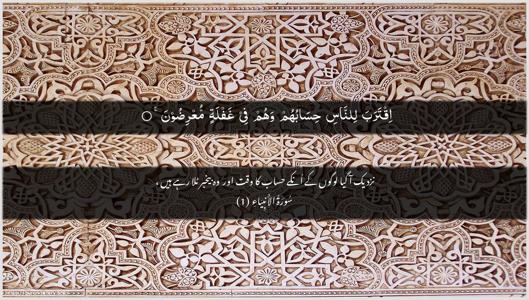 اِقْتَرَبَ لِلنَّاسِ حِسَابُهُمْ وَهُمْ فِىْ غَفْلَةٍ مُّعْرِضُوْنَ ۚ ○
نزدیک آ گیا لوگوں کے اُنکے حساب کا وقت اور وہ بیخبر ٹلا رہے ہیں،
سُورَةُ الأَنْبِيَاء (1)